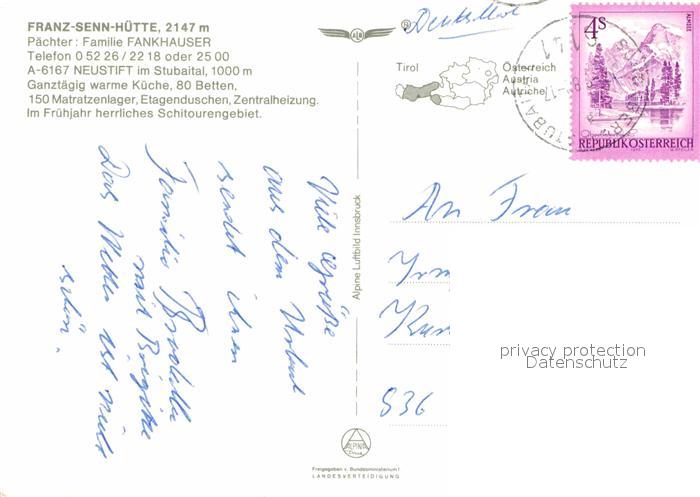 FRANZ-SENN-HÜTTE, 2147 m
Pächter: Familie FANKHAUSER
Telefon 0 52 26 / 22 18 oder 25 00
A-6167 NEUSTIFT im Stubaital, 1000 m
Ganztägig warme Küche, 80 Betten,
150 Matratzenlager, Etagenduschen, Zentralheizung.
Im Frühjahr herrliches Schitourengebiet.
Tirol
Österreich
Austria
Autriche
4S
ALMSEE
REPUBLIK ÖSTERREICH
Viele Grüße
aus dem Urlaub
sendet ihnen
Familie
mit Brigitte
Das Wetter ist nicht
schön.
Alpine Luftbild Innsbruck
An Frau
Irm
Kur
836
privacy protection
Datenschutz
ALPINA
Freigegeben v. Bundesministerium f.
LANDESVERTEIDIGUNG